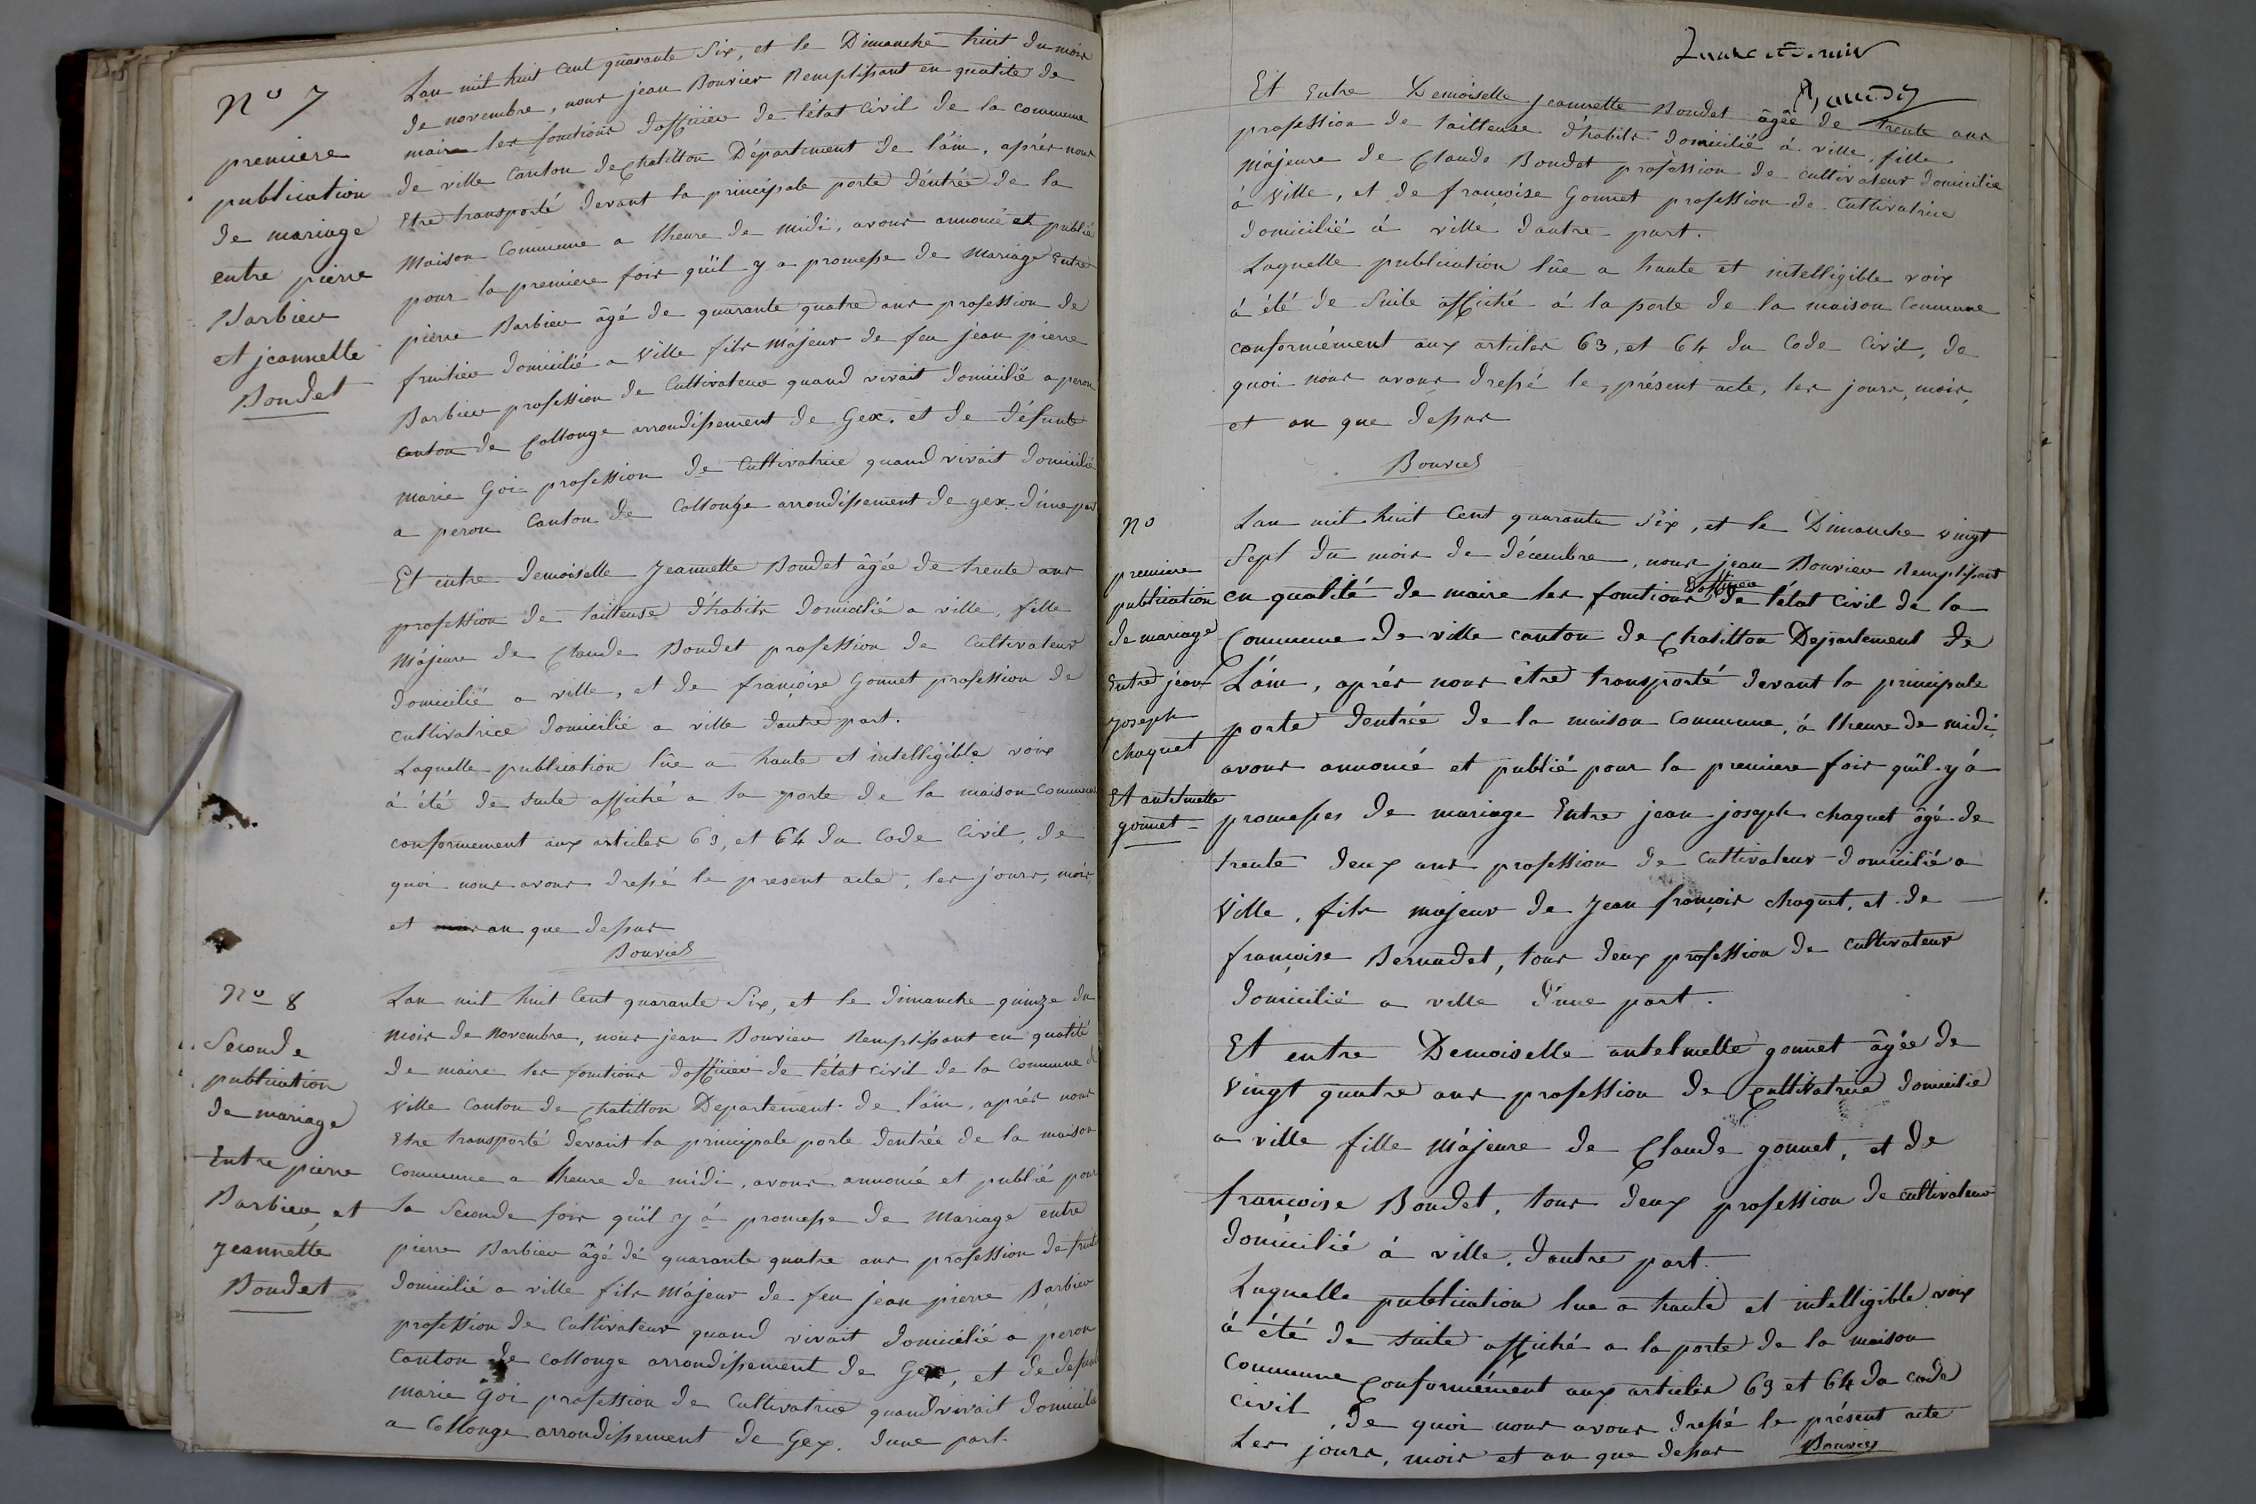 N° 7
premiere
publication
de mariage
entre pierre
Barbier
et jeannette
Bondet
Lan mil huit Cent quarante Six, et le Dimanche huit du mois
de novembre, nous jean Bouvier Remplissant en qualité de
maire les fonctions dofficier de l'état Civil de la commune
de ville Canton de Chatillon Département de l'ain, aprés nous
Etre transporté devant la principale porte d'entrée de la
Maison Commune a lheure de midi, avons annoncé et publié
pour la premiere fois qu'il y a promesse de Mariage Entre
pierre Barbier âgé de quarante quatre ans profession de
fruitier domicilié a Ville fils Májeur de feu jean pierre
Barbier profession de Cultivateur quand vivait domicilié a peron
canton de Collonge arrondissement de Gex. et de défunte
marie Goi profession de Cultivatrice quand vivait domicilié
a peron Canton de Collonge arrondissement de gex. d'une part
Et entre demoiselle Jeannette Bondet âgée de trente ans
profession de tailleuse d'habits domicilié a ville, fille
Májeure de Claude Bondet profession de Cultivateur
domicilié a ville, et de françoise Gonnet profession de
cultivatrice domicilié a ville dautre part.
Laquelle publication lûe a haute et intelligible voix
à été de suite affiché a la porte de la maison Commune
conformement aux articles 63, et 64 du Code Civil, de
quoi nous avons dressé le present acte, les jours, mois,
et mois an que dessus
Bouvier
N° 8
Seconde
publication
de mariage
Entre pierre
Barbier et
Jeannette
Bondet
Lan mil huit Cent quarante Six, et le dimanche quinze du
mois de Novembre, nous jean Bouvier Remplissant en qualité
de maire les fonctions dofficier de l'état civil de la Commune d
Ville canton de Chatillon Departement de l'ain, aprés nous
Etre transporté devant la principale porte dentrée de la maison
Commune a lheure de midi, avons annoncé et publié pour
la Seconde fois qu'il y á promesse de Mariage entre
pierre Barbier âgé dé quarante quatre ans profession de fruiti
domicilié a ville fils Májeur de feu jean pierre Barbier
profession de Cultivateur quand vivait domicilié a peron
Canton de Collonge arrondissement de Gex, et de defunt
marie Goi profession de Cultivatrice quand vivait domicilé
a Collonge arrondissement de Gex. dune part.
Et Entre Demoiselle Jeannette Bondet âgée de trente ans
profession de tailleuse d'habits domicilié á ville, fille
Májeure de Claude Bondet profession de cultivateur domicilié
à Ville, et de françoise Gonnet profession de Cultivatrice
domicilié á ville dautre part.
Laquelle publication lûe a haute et intelligible voix
á été de Suite affiché á la porte de la maison Commune
conformément aux articles 63, et 64 du Code Civil, de
quoi nous avons dressé le présent acte, les jours, mois,
et an que dessus
Bouvier
N°
premiere
publication
de mariage
Entre jean
Joseph
chaquet
Et antelmette
gonnet
Lan mil huit Cent quarante Six, et le Dimanche vingt
Sept du mois de décembre, nous jean Bouvier Remplissant
en qualité de maire les fonctions dofficier de l'état Civil de la
Commune de ville canton de Chatillon Departement de
L'ain, aprés nous être transporté devant la principale
porte dentrée de la maison Commune, á lheure de midi,
avons annoncé et publié pour la premiere fois qu'il y á
promesses de mariage Entre jean joseph chaquet âgé de
trente deux ans profession de Cultivateur domicilié a
Ville, fils majeur de Jean françois chaquet, et de
françoise Bernadet, tous deux profession de Cultivateur
domicilié a ville d'une part.
Et entre Demoiselle antelmette gonnet âgée de
vingt quatre ans profession de Cultivatrice domicilié
a ville fille Májeure de Claude gonnet, et de
françoise Bondet, tous deux profession de cultivateur
domicilié á ville, dautre part.
Laquelle publication lue a haute et intelligible voix
à été de suite affiché a la porte de la maison
Commune Conformément aux articles 63 et 64 du code
civil, de quoi nous avons dressé le présent acte
Les jours, mois et an que dessus Bouvier